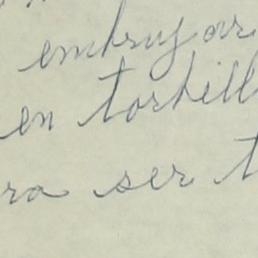 embruj ar
en tortill
ra ser t